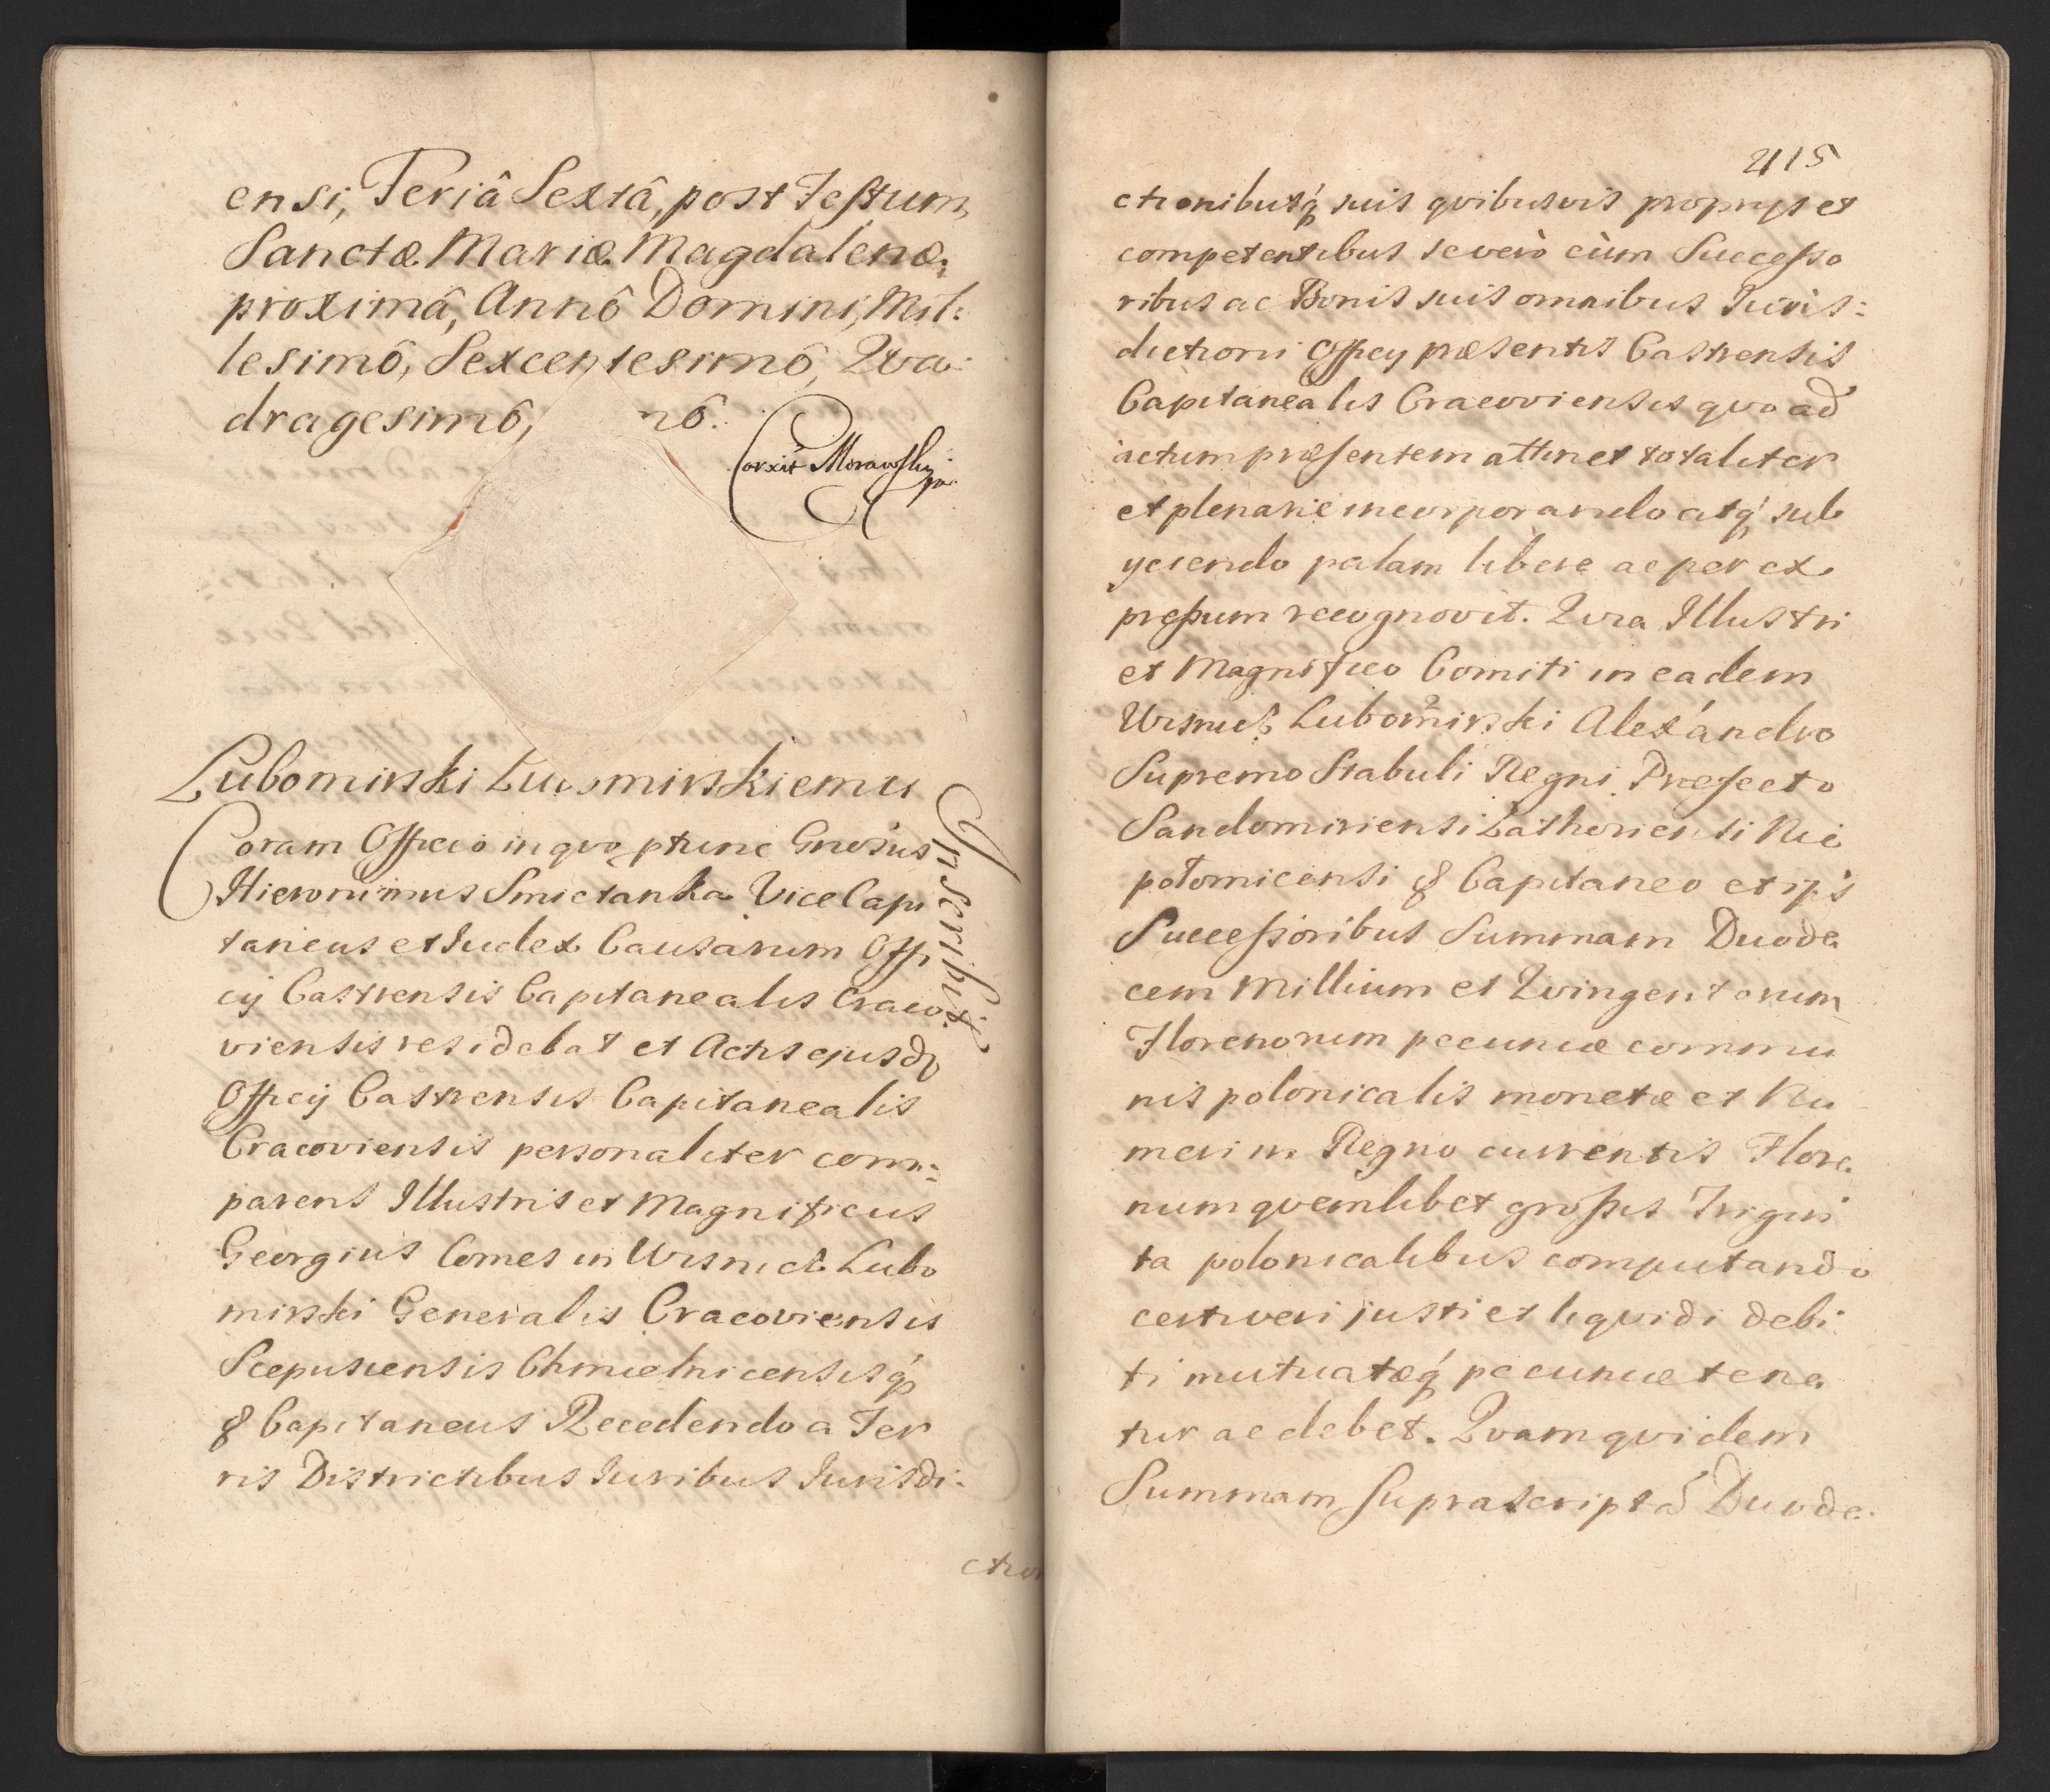 ensi, Feriâ Sextâ, post Festum
Sanctæ Mariæ Magdalenæ,
proximâ, Annô Domini, Mil:
lesimô, Sexcentesimô, Qva:
dragesimô, nô.
Corxit Morawsky
Lubomirski Lubomirskiemu
Inscribit
Coram Officio in qvo ptunc Gnosus
Hieronimus Smietanka Vice Capi
taneus et Iudex Causarum Offi
cij Castrensis Capitanealis Craco:
viensis residebat et Actis ejusd
Officij Castrensis Capitanealis
Cracoviensis personaliter com:
parens Illustris et Magnificus
Georgius Comes in Wisnicz Lubo
mirski Generalis Cracoviensis
Scepusiensis Chmielnicensisq́
& Capitaneus Recedendo a Ter
ris Districtibus Iuribus Iurisdi:
ctio
415
ctionibusq́ suis qvibusvis proprijs et
competentibus se verò cùm Successo
ribus ac Bonis suis omnibus Iuris:
dictioni Officij præsentis Castrensis
Capitanealis Cracoviensis qvo ad
actum præsentem attinet totaliter
et plenarie incorporando atq́ sub
ijciendo palam libere ac per ex
pressum recognovit. Qvia Illustri
et Magnifico Comiti in eadem
Wisnicz Lubomirski Alexándro
Supremo Stabuli Regni Præfecto
Sandomiriensi Zathoriensi Nie
połomicensi & Capitaneo et ips
Successoribus Summam Duode
cem Millium et Qvingentorum
Florenorum pecuniæ commu
nis polonicalis monetæ et Nu
meri in Regno currentis Flore
num qvemlibet grossis Trigin
ta polonicalibus computando
certi veri justi et liqvidi debi
ti mutuatæq́ pecuniæ tene
tur ac debet. Qvam qvidem
Summam suprascriptã Duode: